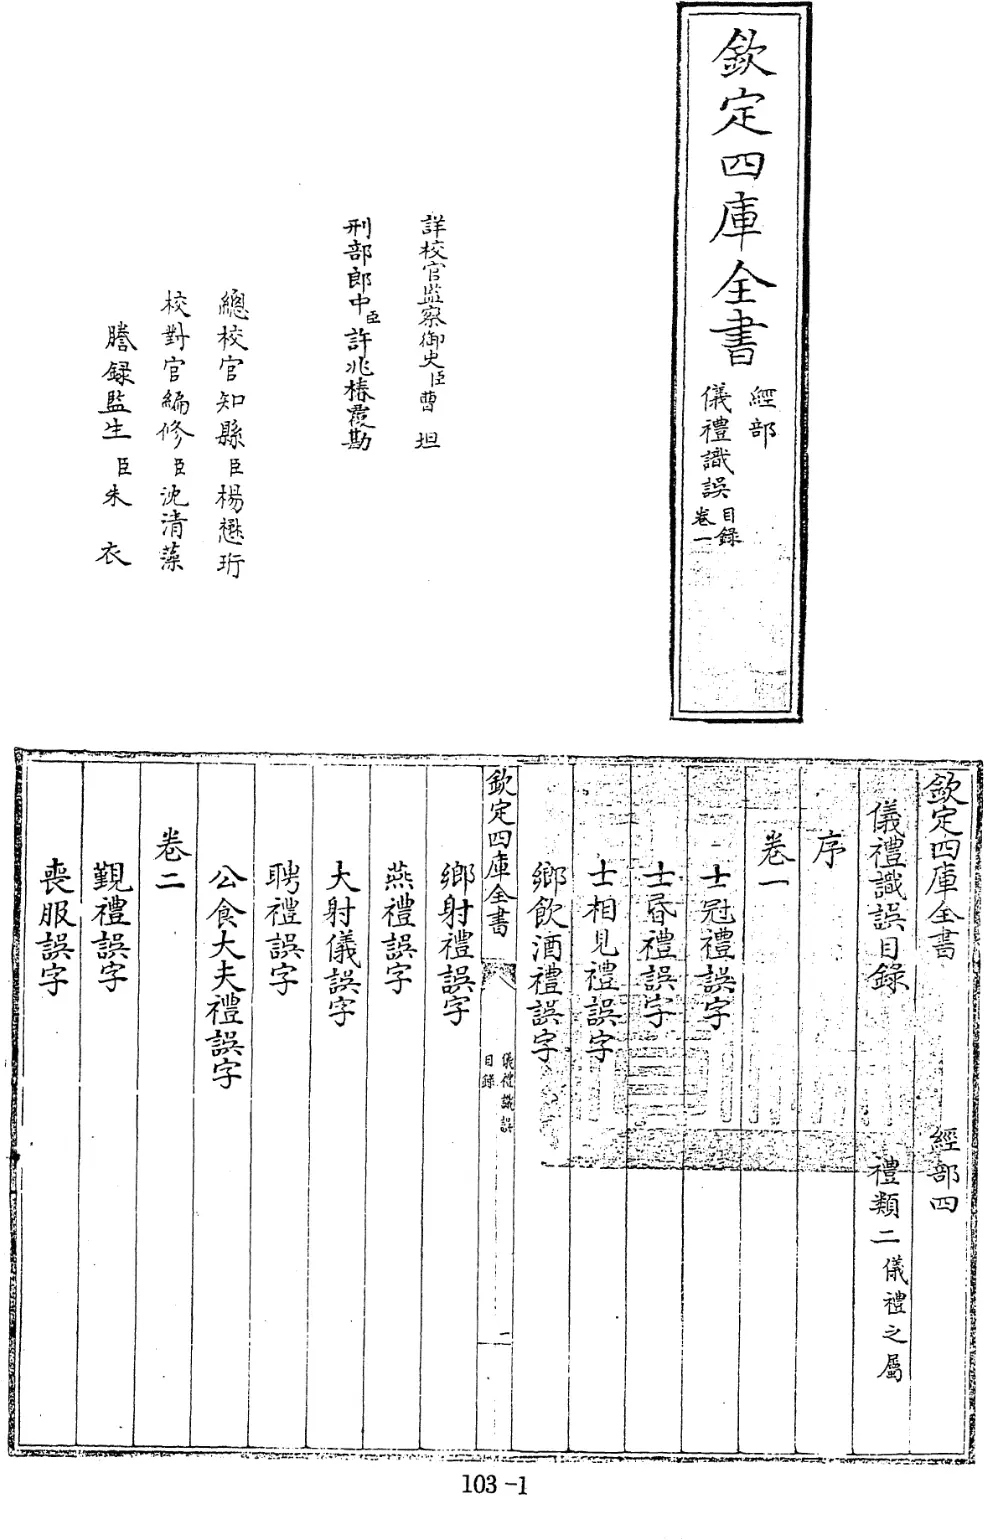 欽定四庫全書
經部
儀禮識誤
目錄
卷一
詳校官監察御史臣曹坦
刑部郎中臣許兆椿覆勘
總校官知縣臣楊懋珩
校對官編修臣沈清藻
謄錄監生臣朱衣
欽定四庫全書 經部四
儀禮識誤目錄 禮類二儀禮之屬
序
卷一
士冠禮誤字
士昏禮誤字
士相見禮誤字
鄉飲酒禮誤字
欽定四庫全書
儀禮識誤
目錄
一
鄉射禮誤字
燕禮誤字
大射儀誤字
聘禮誤字
公食大夫禮誤字
卷二
覲禮誤字
喪服誤字
103-1